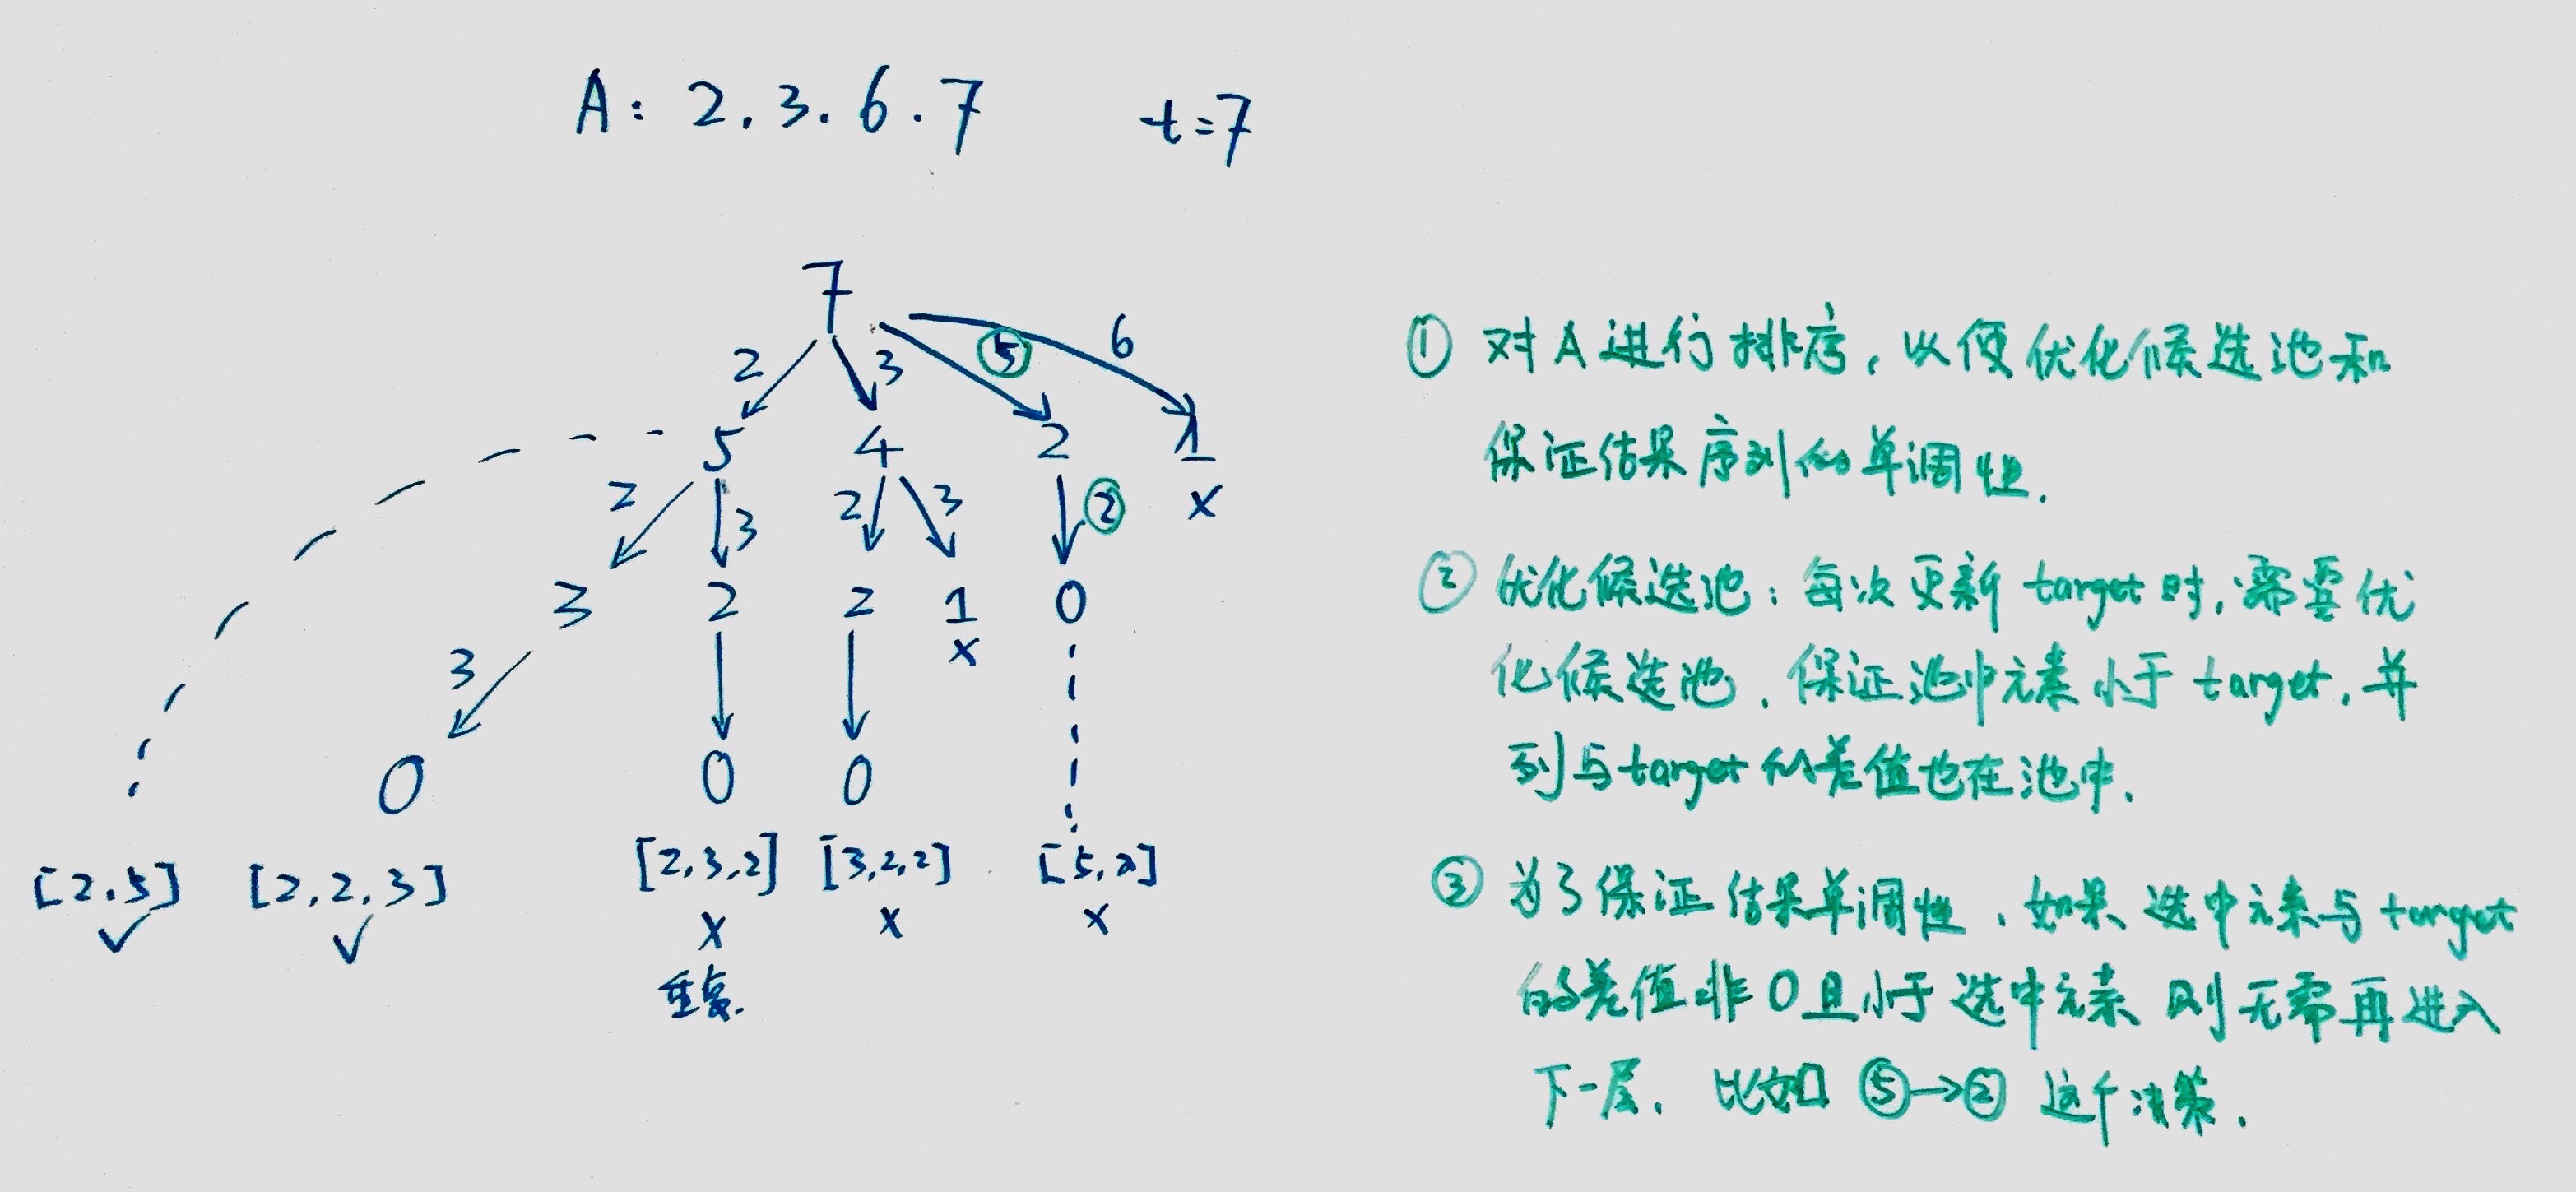 A: 2.3.6.7 t=7
7
2 3 ⑤ 6
5 4 2 1
2 3 2 3 ② x
3 2 2 1 0
x
3
0 0 0
[2.5] [2,2,3] [2,3,2] [3,2,2] [5,2]
✓ ✓ x x x
重复.
① 对A进行排序, 以便优化候选池和
保证结果序列的单调性.
② 优化候选池: 每次更新target时, 需要优
化候选池, 保证池中元素小于target, 并
且与target的差值也在池中.
③ 为了保证结果单调性, 如果选中元素与target
的差值非0且小于选中元素 则无需再进入
下一层. 比如 ⑤→② 这个决策.